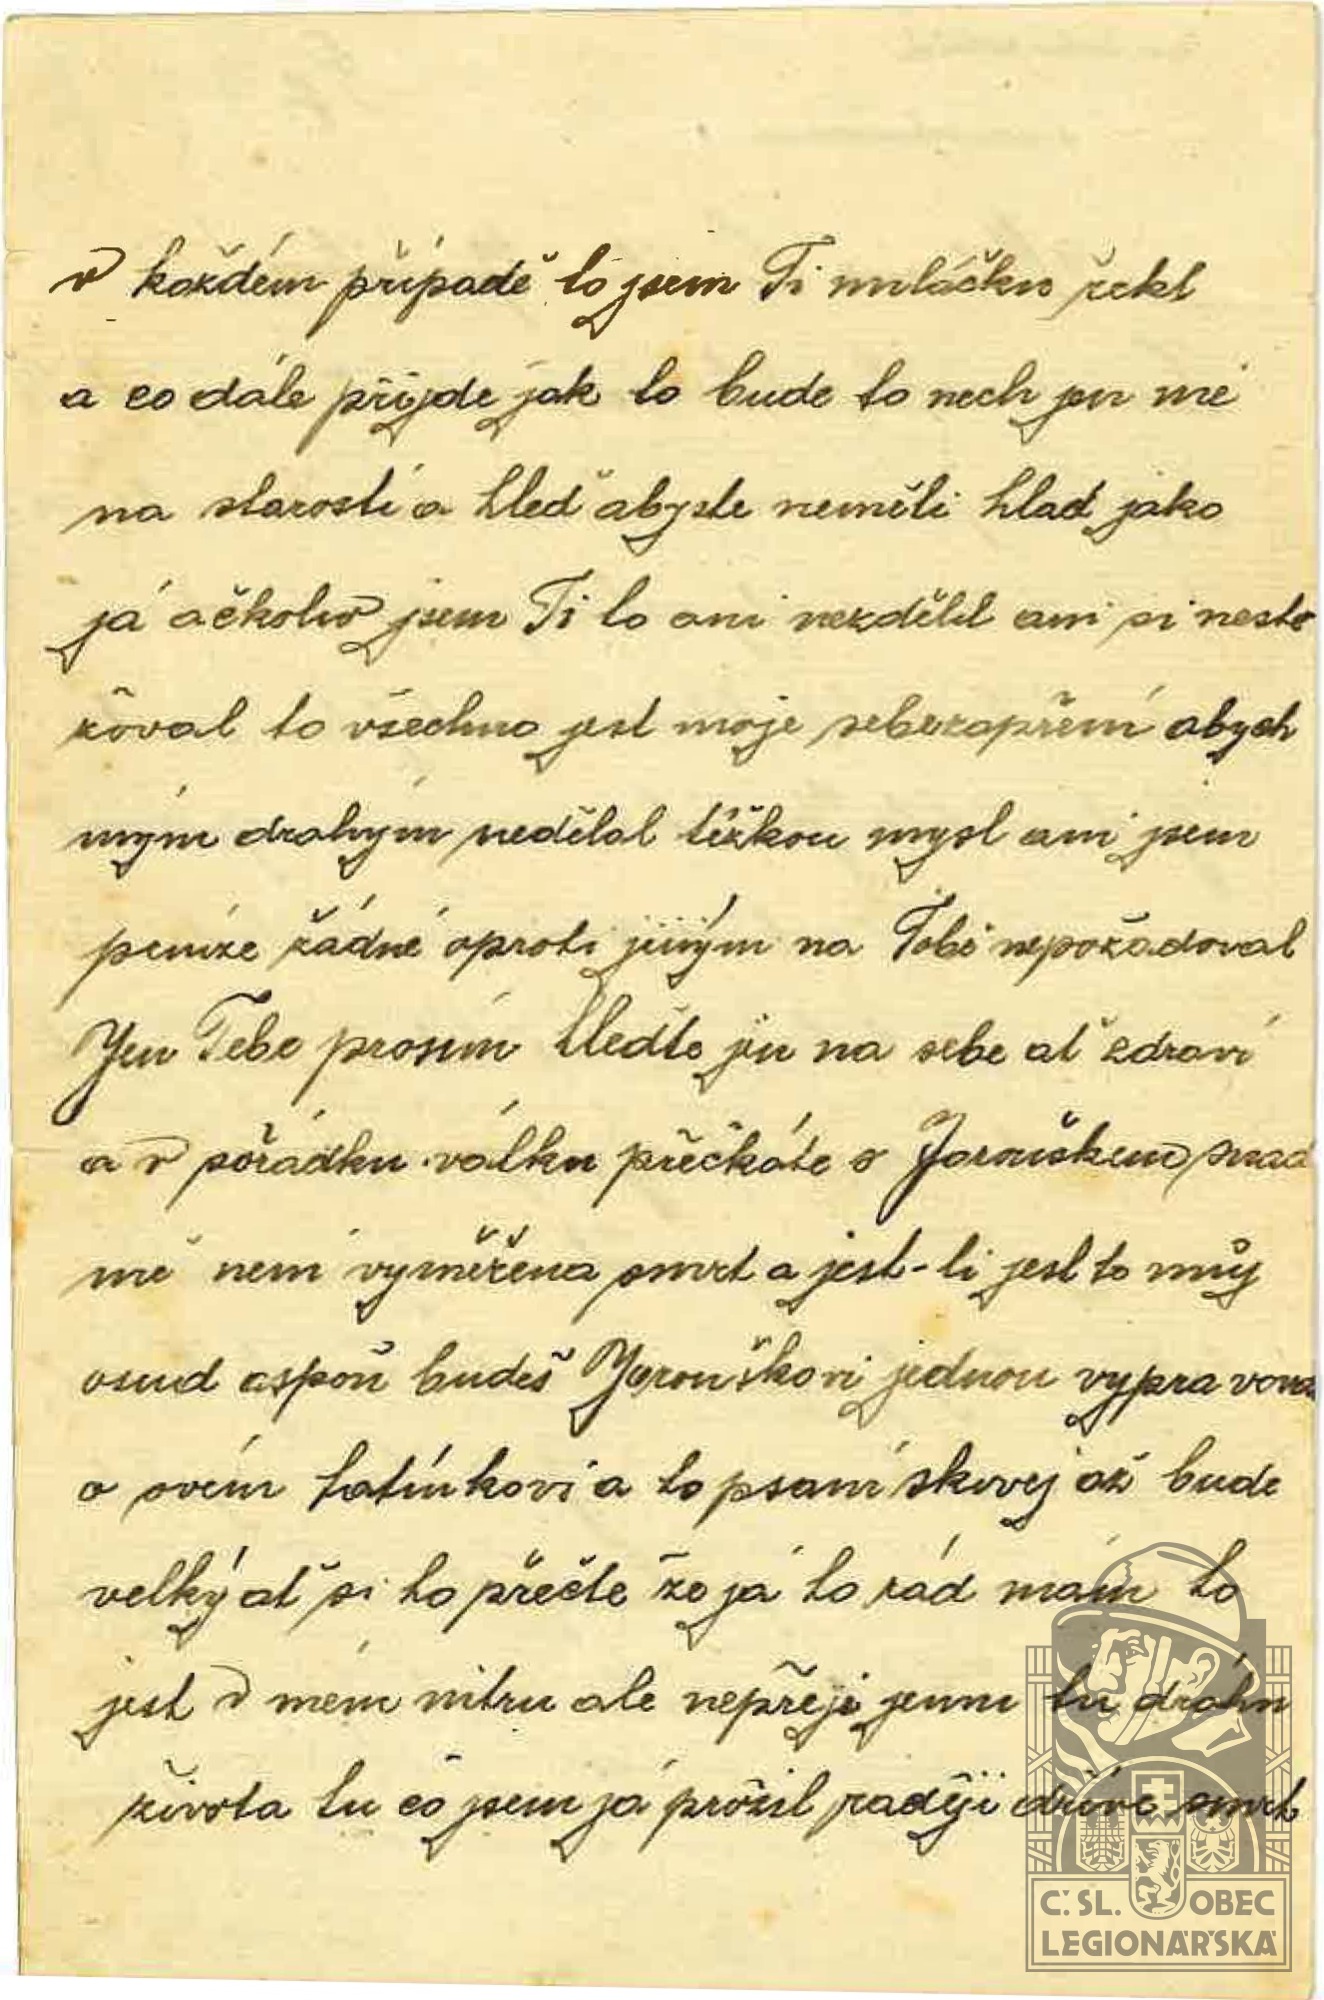 v každém případě to jsem Ti miláčku řekl
a co dále přijde jak to bude to nech jen mě
na starosti a hleď abyste neměli hlad jako
já ačkoliv jsem Ti to ani nezdělil ani si nestě
žoval to všechno jest moje sebezapření abych
mým drahým nedělal těžkou mysl ani jsem
peníze žádné oproti jiným na Tobě nepožadoval
Jen Tebe prosím hleďte jen na sebe ať zdraví
a v pořádku válku přečkáte s Jarouškem snad
mě není vyměřena smrt a jest-li jest to můj
osud aspoň budeš Jarouškovi jednou vypravova
o svém tatínkovi a to psaní skovej až bude
velký ať si to přečte že já to rád mám to
jest v mém nitru ale nepřeji jemu tu dráhu
života tu co jsem já prožil raději dříve smrt
Č. SL. OBEC
LEGIONÁŘSKÁ